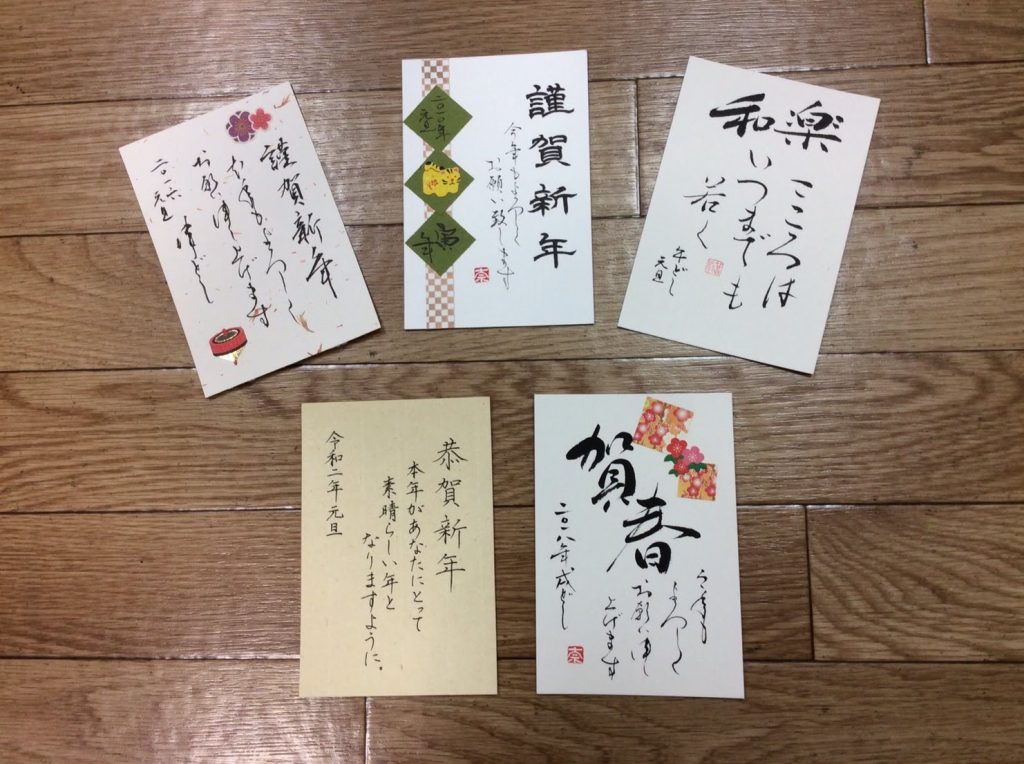 謹賀新年
本年もよろしく
お願い申し上げます
二〇一六 元旦
謹賀新年
今年もよろしく
お願い致します
二〇一〇年
寅
年
和楽
こころは
いつまでも
若く
午どし
元旦
恭賀新年
本年があなたにとって
素晴らしい年と
なりますように。
令和二年元旦
賀春
今年も
よろしく
お願い申し
上げます
二〇一八年戌どし